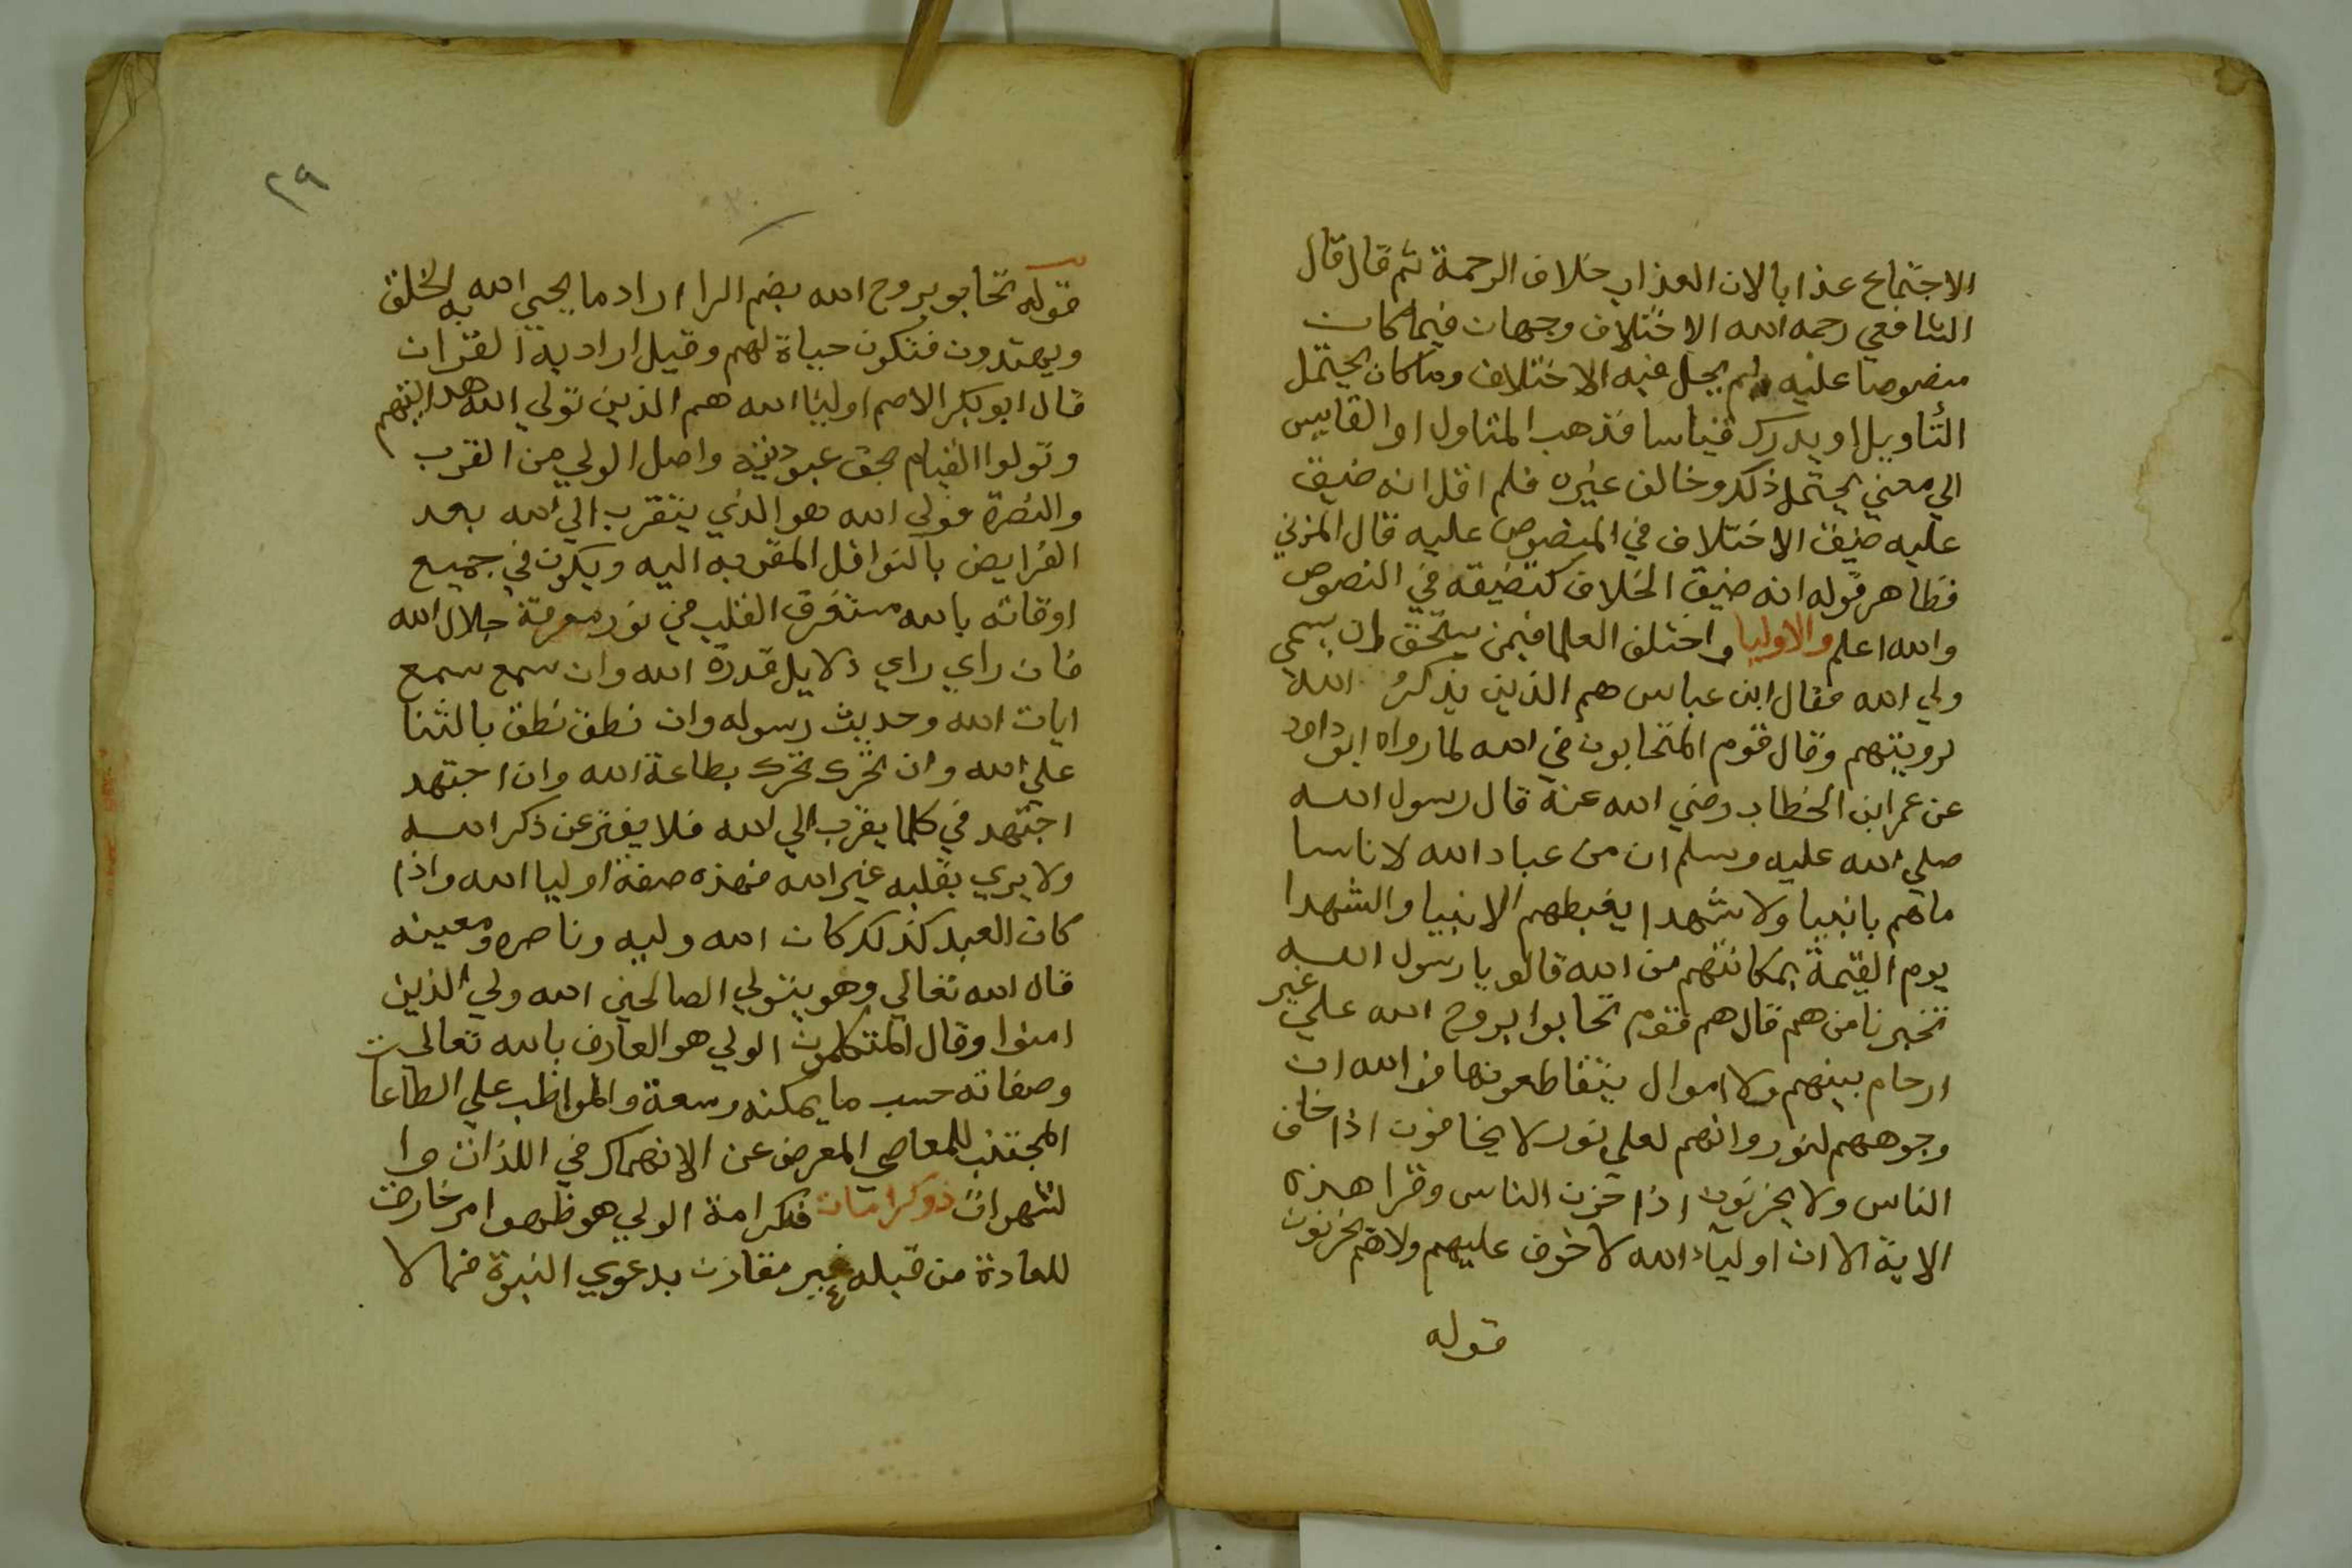 الاجتماع عذابا لان العذاب خلاف الرحمة ثم قال قال
الشافعي رحمه الله الاختلاف وجهان فيما كان
منصوصا عليه لم يحل فيه الاختلاف وما كان يحتمل
التأويل او يدرك قياسا فذهب المتاول او القايس
الي معني يحتمل ذلك وخالف غيره فلم اقل انه ضيق
عليه ضيق الاختلاف في المنصوص عليه قال المزني
فظاهر قوله انه ضيق الخلاف كتضيقه في النصوص
والله اعلم والاوليا واختلف العلما فيمن يستحق ان يسمي
ولي الله فقال ابن عباس هم الذين يذكر الله
لرويتهم وقال قوم المتحابون في الله لما رواه ابو داود
عن عمر ابن الخطاب رضي الله عنه قال رسول الله
صلي الله عليه وسلم ان من عباد الله لاناسا
ماهم بانبيا ولا شهدا يغبطهم الانبيا والشهدا
يوم القيمة بمكانتهم من الله قالو يا رسول الله
تخبرنا من هم قال هم قوم تحابوا بروح الله علي غير
ارحام بينهم ولا اموال يتقاطعونها فوالله ان
وجوههم لنور وانهم لعلي نور لا يخافون اذا خاف
الناس ولا يحزنون اذا حزن الناس وقرا هذه
الاية الا ان اوليآء الله لا خوف عليهم ولا هم يحزنون
قوله
٢٩
قوله تحابو بروح الله بضم الرا اراد ما يحيي الله به الخلق
ويهتدون فتكون حياة لهم وقيل اراد به القران
قال ابو بكر الاصم اوليا الله هم الذين تولي الله هدايتهم
وتولوا القيام بحق عبوديته واصل الولي من القرب
والنصرة فولي الله هو الذي يتقرب الي الله بعد
الفرايض بالنوافل المقربه اليه ويكون في جميع
اوقاته بالله مستغرق القلب في نور معرفة جلال الله
فان راي راي دلايل قدرة الله وان سمع سمع
ايات الله وحديث رسوله وان نطق نطق بالثنا
علي الله وان تحرك تحرك بطاعة الله وان اجتهد
اجتهد في كلما يقرب الي الله فلا يفتر عن ذكر الله
ولا يري بقلبه غير الله فهذه صفة اوليا الله واذا
كان العبد كذلك كان الله وليه وناصره ومعينه
قال الله تعالي وهو يتولي الصالحين الله ولي الذين
امنوا وقال المتكلمون الولي هو العارف بالله تعالي
وصفاته حسب ما يمكنه وسعة والمواظب علي الطاعات
المجتنب للمعاصي المعرض عن الانهماك في اللذات وا
لشهوات ذو كرامات فكرامة الولي هو ظهور امر خارق
للعادة من قبله غير مقارن بدعوي النبوة فما لا